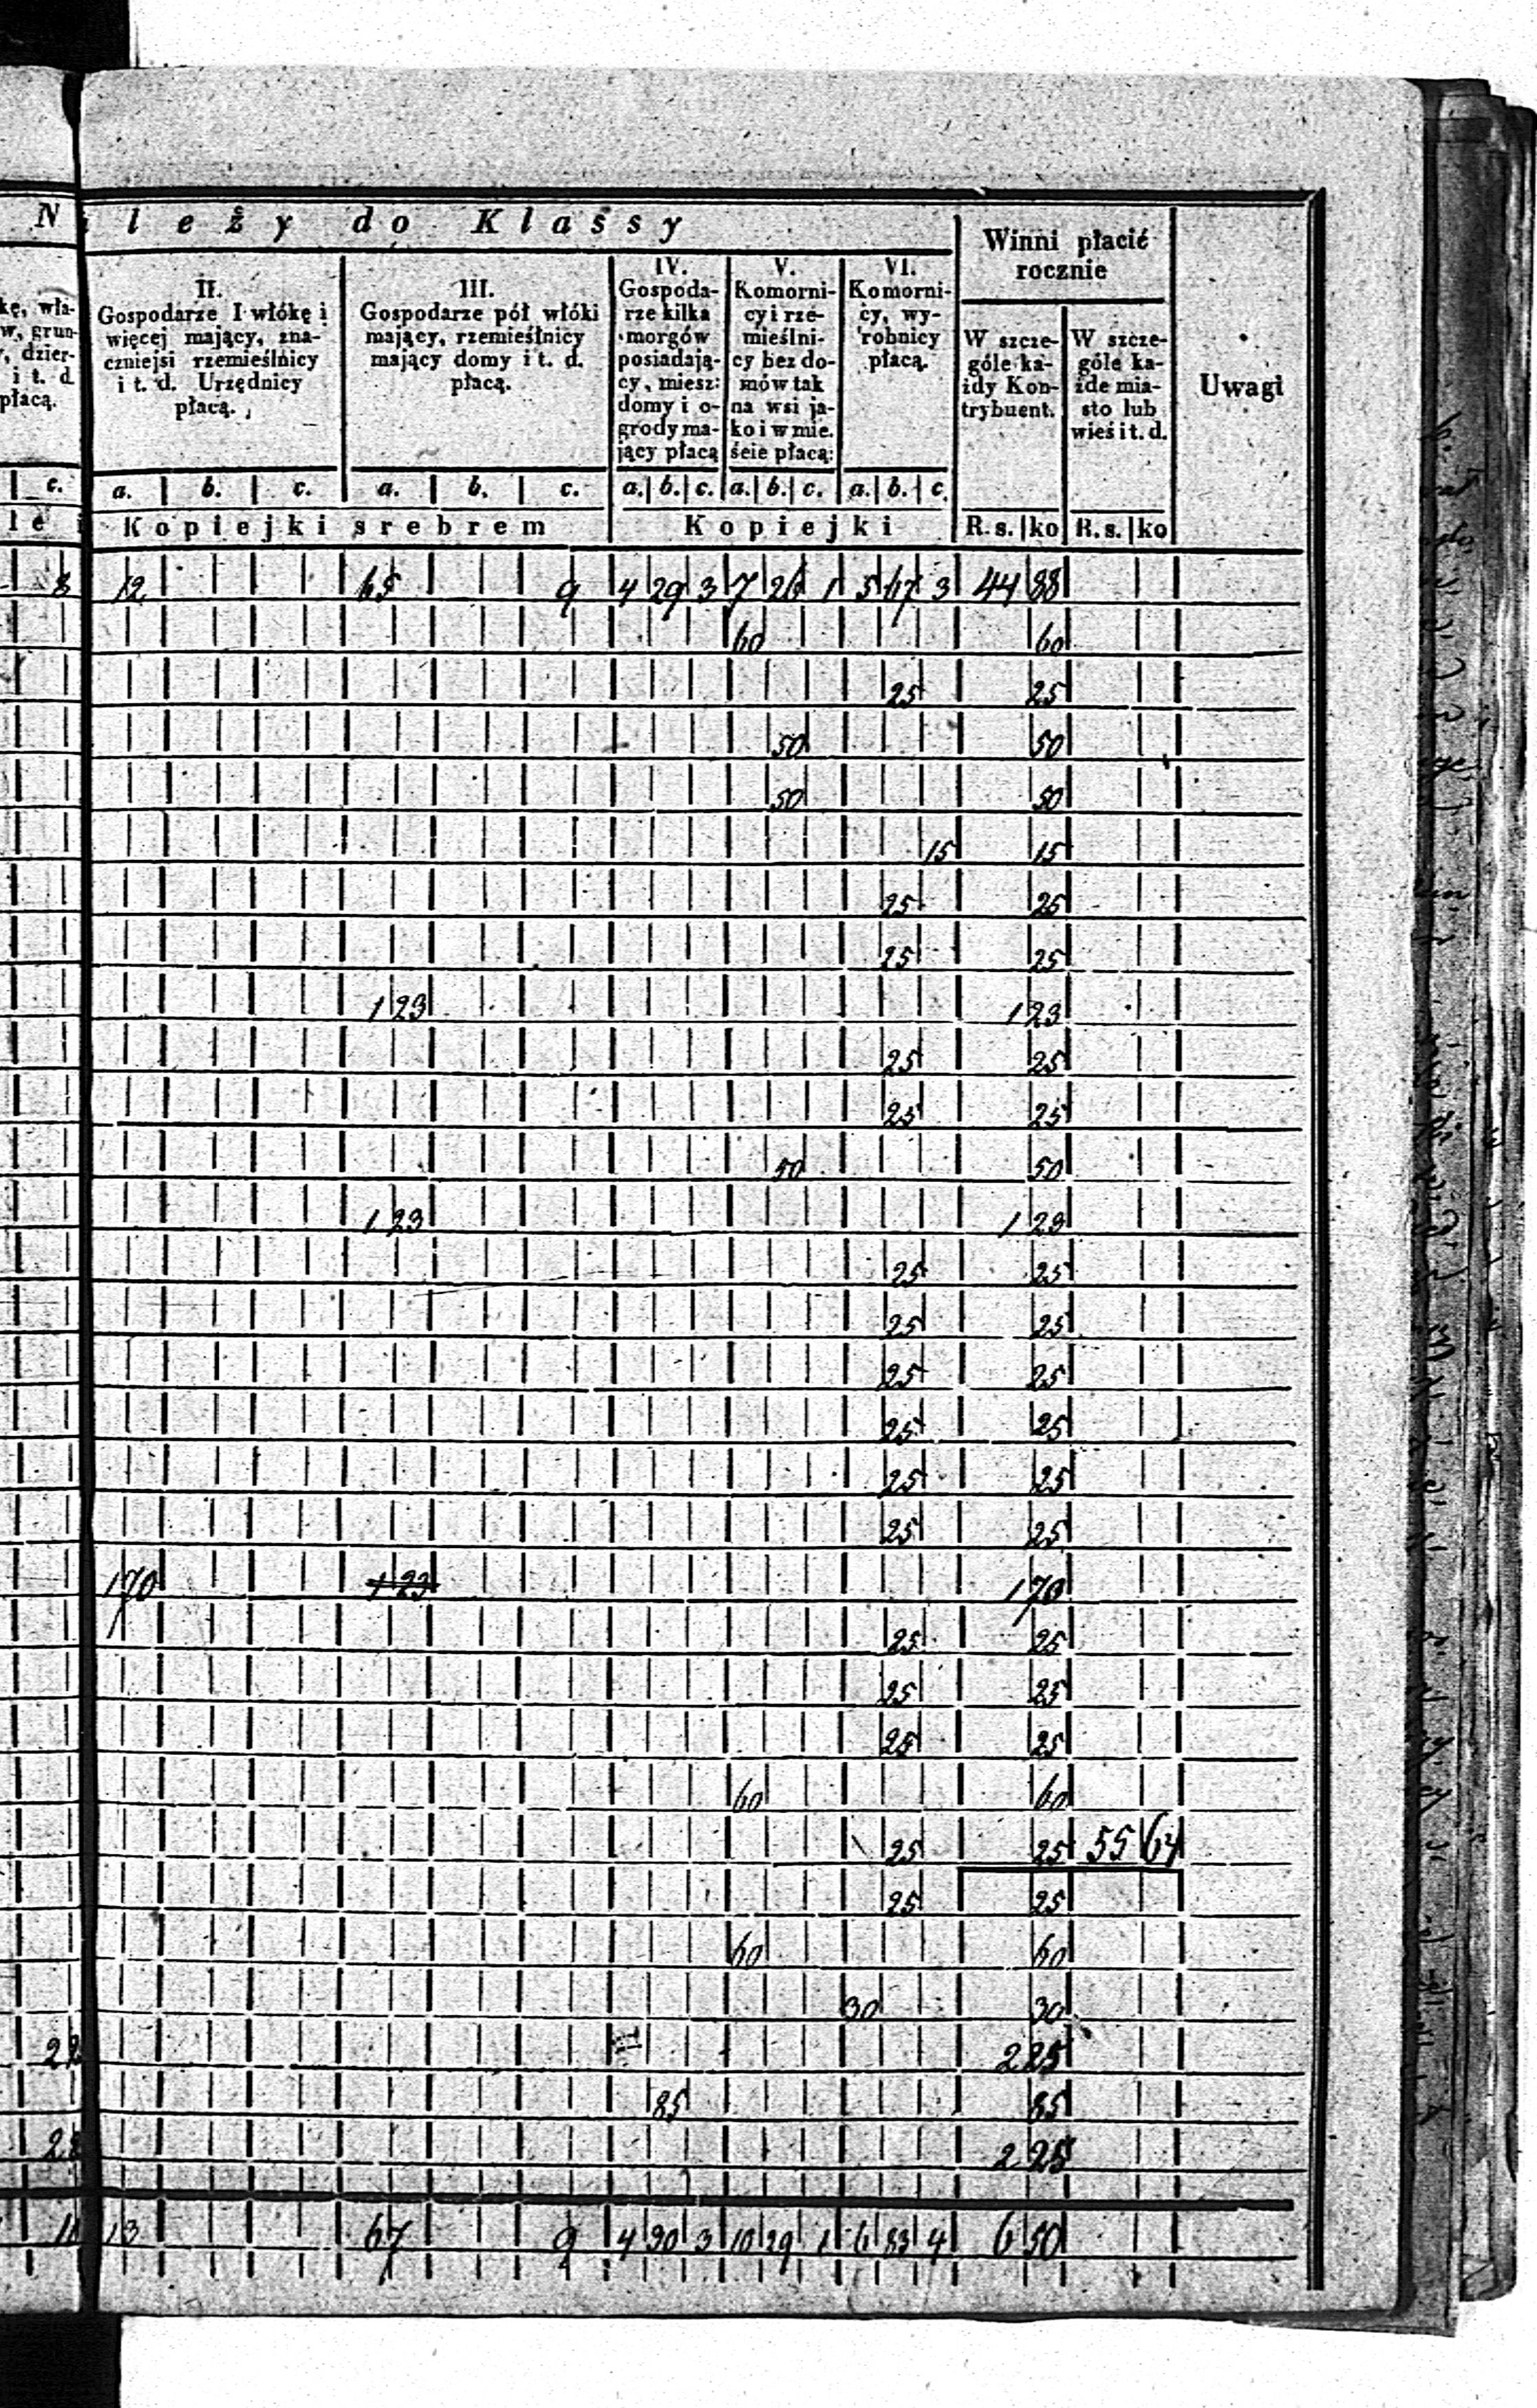 N a l e ż y d o K l a s s y
Winni płacić
rocznie
Uwagi
kę, wła-
w, grun-
, dzier-
i t. d
płacą.
II.
Gospodarze I włókę i
więcej mający, zna-
czniejsi rzemieślnicy
i t. d. Urzędnicy
płacą.
III.
Gospodarze pół włóki
mający, rzemieślnicy
mający domy i t. d.
płacą.
IV.
Gospoda-
rze kilka
morgów
posiadają-
cy, miesz:
domy i o-
grody ma-
jący płacą
V.
Komorni-
cy i rze-
mieślni-
cy bez do-
mów tak
na wsi ja-
ko i w mie.
ście płacą:
VI.
Komorni-
cy, wy-
robnicy
płacą.
W szcze-
góle ka-
żdy Kon-
trybuent.
W szcze-
góle ka-
żde mia-
sto lub
wieś i t. d.
c. a. b. c. a. b. c. a. b. c. a. b. c. a. b. c.
l e K o p i e j k i s r e b r e m K o p i e j k i R. s. ko R. s. ko
8 12 65 9 4 29 3 7 26 1 5 67 3 44 88
60 60
25 25
50 50
50 50
15 15
25 25
25 25
1 23 1 23
25 25
25 25
50 50
1 23 1 23
25 25
25 25
25 25
25 25
25 25
25 25
170 1 23 1 70
25 25
25 25
25 25
60 60
25 25 55 64
25 25
60 60
30 30
2 25
85 85
2 25
11 13 67 9 4 30 3 10 29 1 6 83 4 6 50